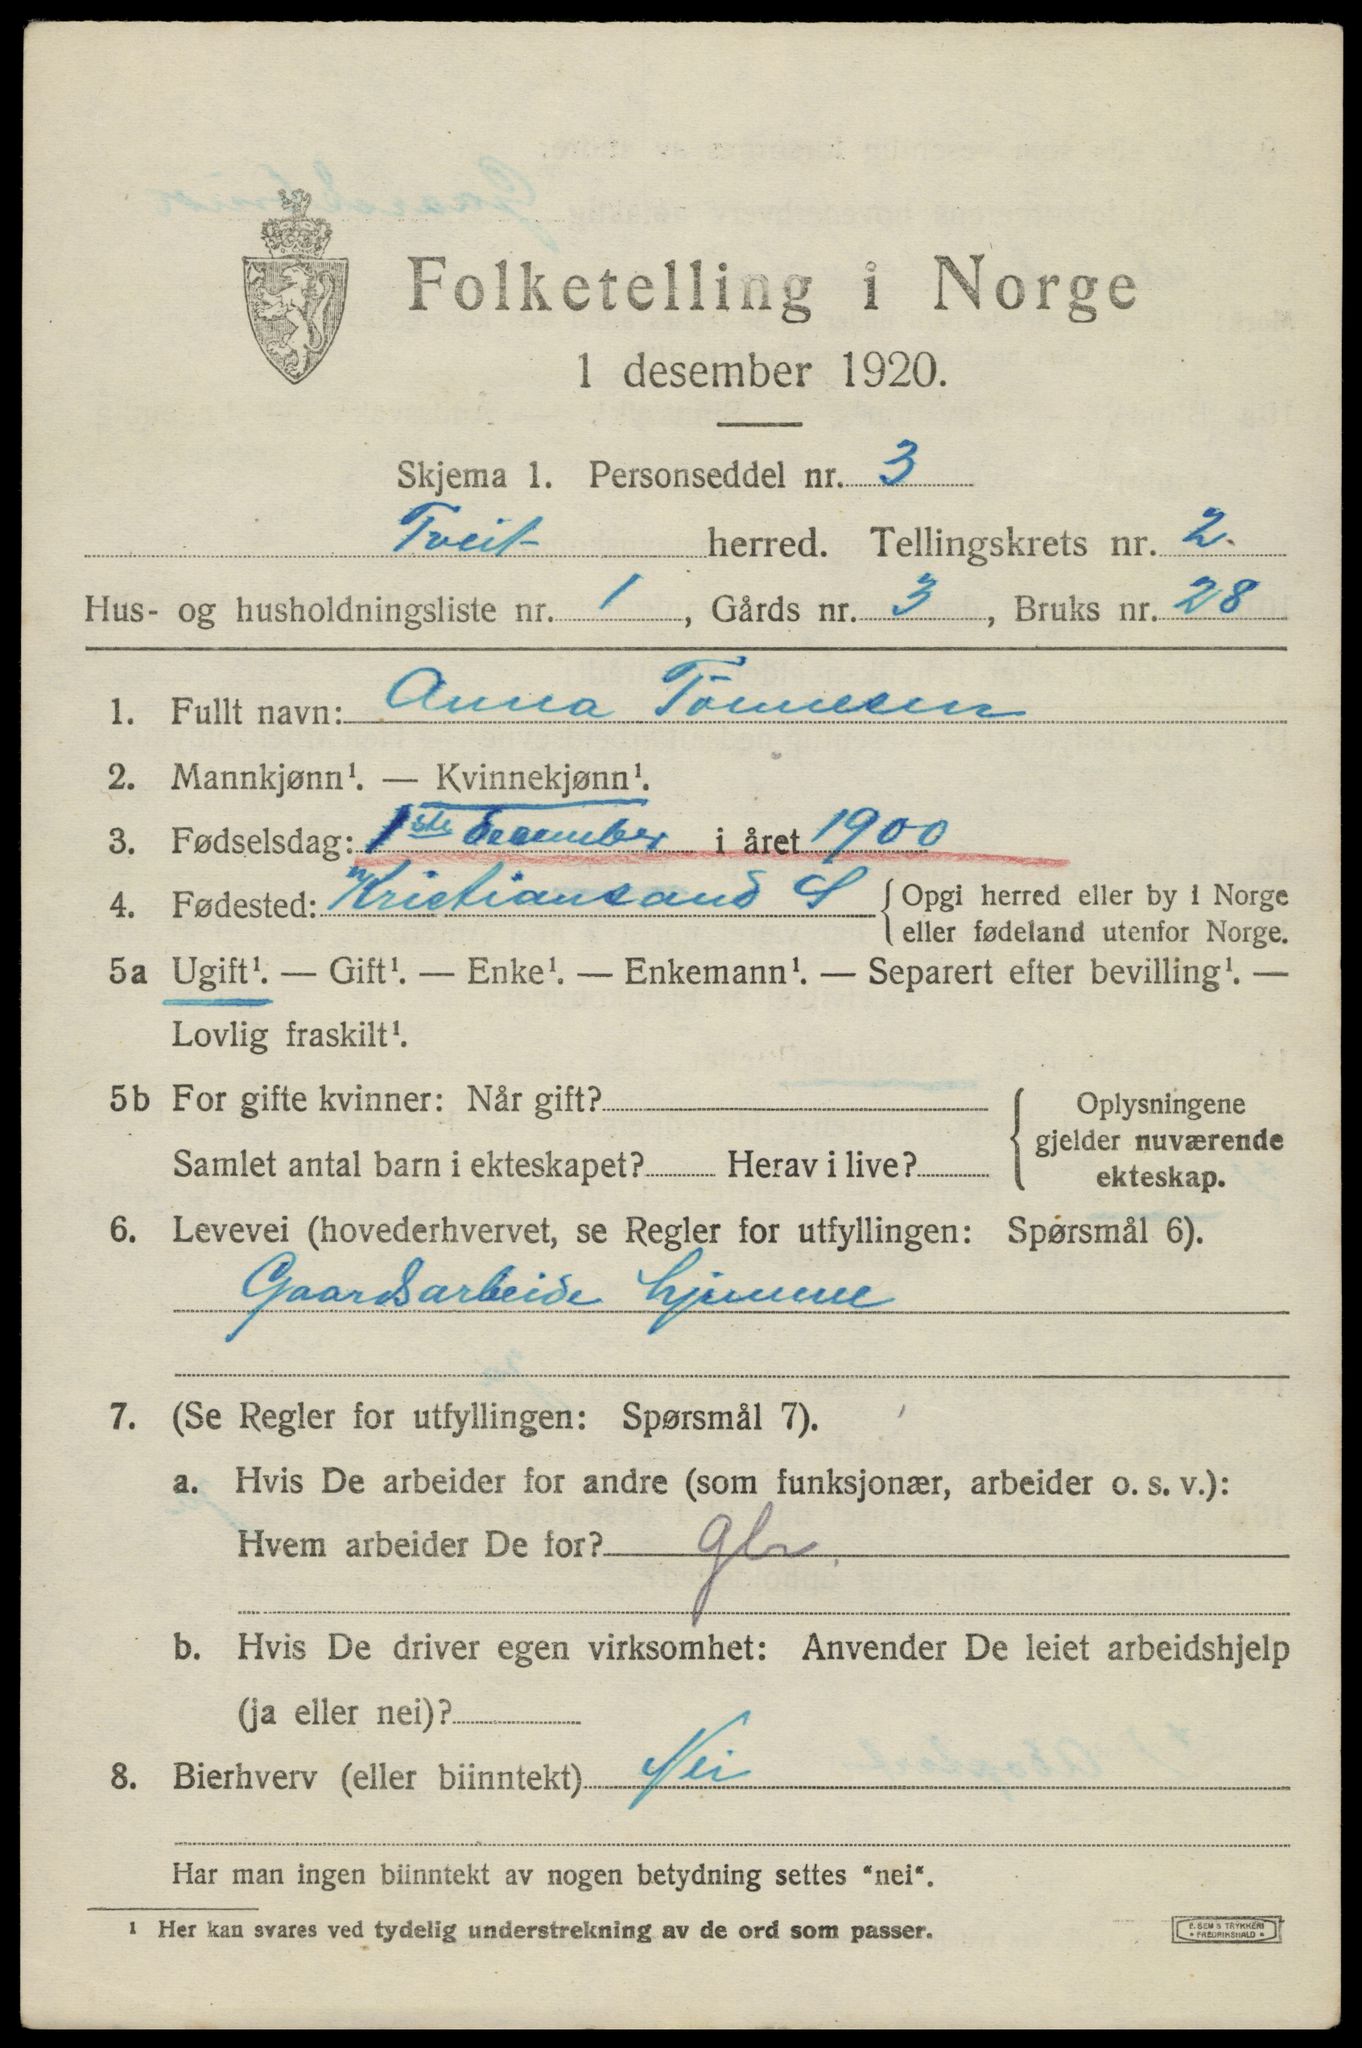 Folketelling i Norge
1 desember 1920.
Skjema 1. Personseddel nr. 3
Tveit herred. Tellingskrets nr. 2.
Hus- og husholdningsliste nr. 1, Gårds nr. 3, Bruks nr. 28
1. Fullt navn: Anna Tönnesen
2. Mannkjønn¹. — Kvinnekjønn¹.
3. Fødselsdag: 1ste december i året 1900
4. Fødested: Kristiansand S { Opgi herred eller by i Norge
eller fødeland utenfor Norge.
5a Ugift¹. — Gift¹. — Enke¹. — Enkemann¹. — Separert efter bevilling¹. —
Lovlig fraskilt¹.
5b For gifte kvinner: Når gift?
Samlet antal barn i ekteskapet? Herav i live?
{ Oplysningene
gjelder nuværende
ekteskap.
6. Levevei (hovederhvervet, se Regler for utfyllingen: Spørsmål 6).
Gaardsarbeide hjemme
7. (Se Regler for utfyllingen: Spørsmål 7).
a. Hvis De arbeider for andre (som funksjonær, arbeider o. s. v.):
Hvem arbeider De for? gbr.
b. Hvis De driver egen virksomhet: Anvender De leiet arbeidshjelp
(ja eller nei)?
8. Bierhverv (eller biinntekt) Nei
Har man ingen biinntekt av nogen betydning settes "nei".
¹ Her kan svares ved tydelig understrekning av de ord som passer.
E. SEM'S TRYKKERI
* FREDRIKSHALD *